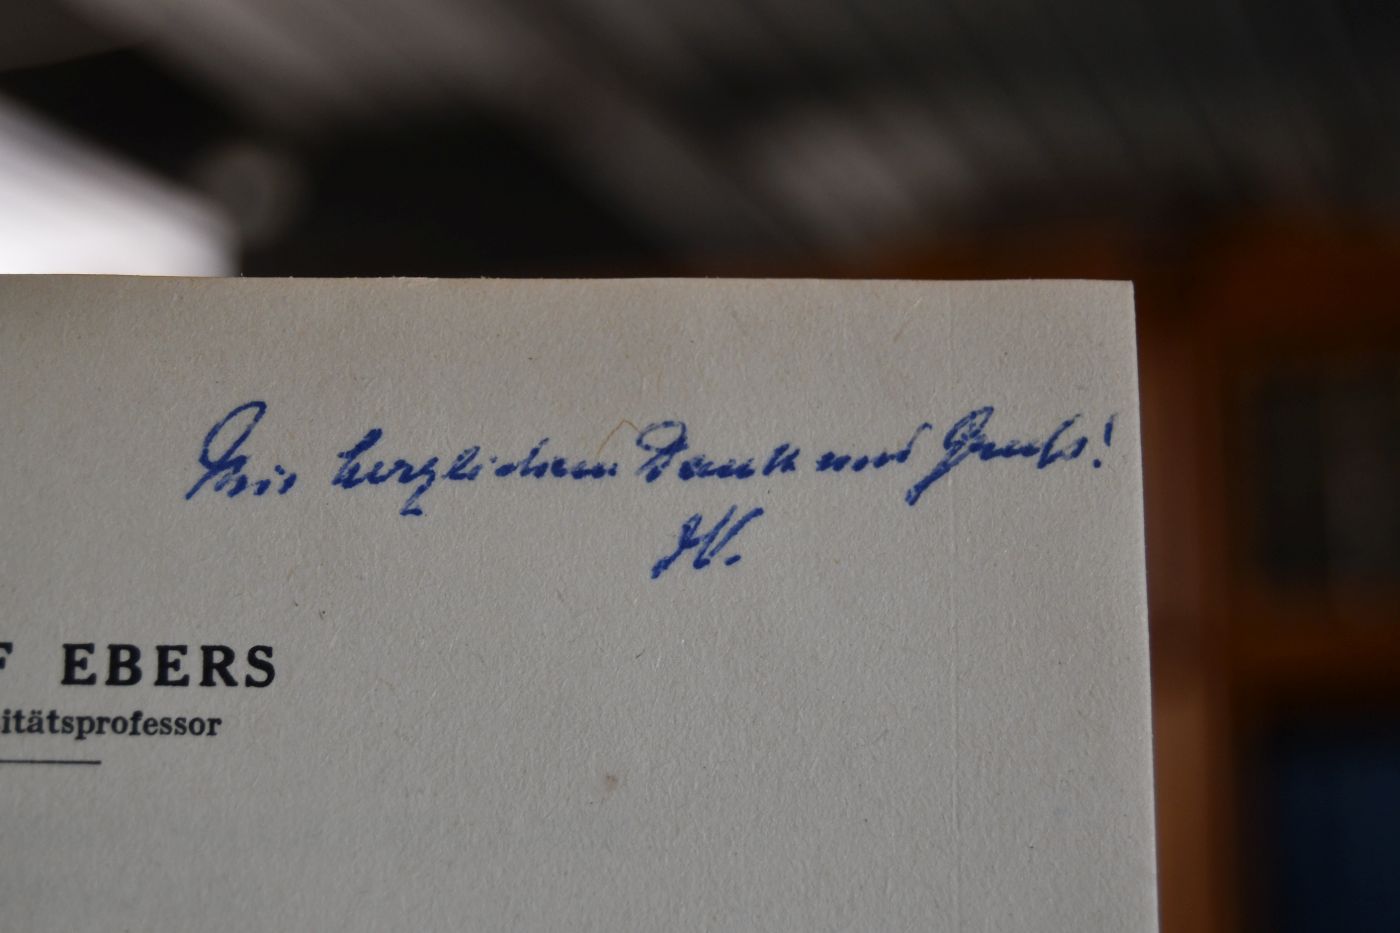 Mit herzlichem Dank und Gruß!
F EBERS
itätsprofessor